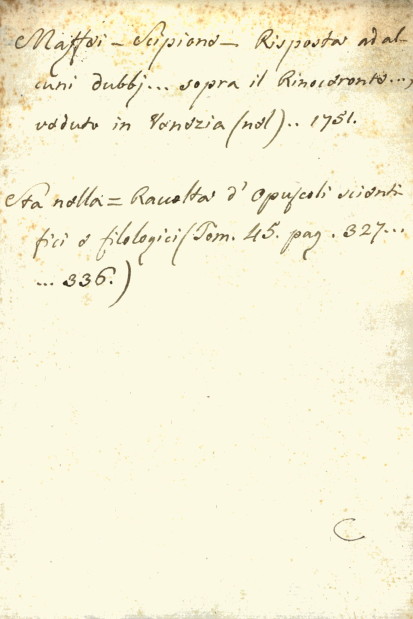 Maffei – Scipione – Risposta ad al-
cuni dubbj... sopra il Rinoceronte...,
veduto in Venezia (nel).. 1751.
Sta nella = Racolta d' Opuscoli scienti
fici e filologici (Tom. 45. pag. 327...
... 336.)
C